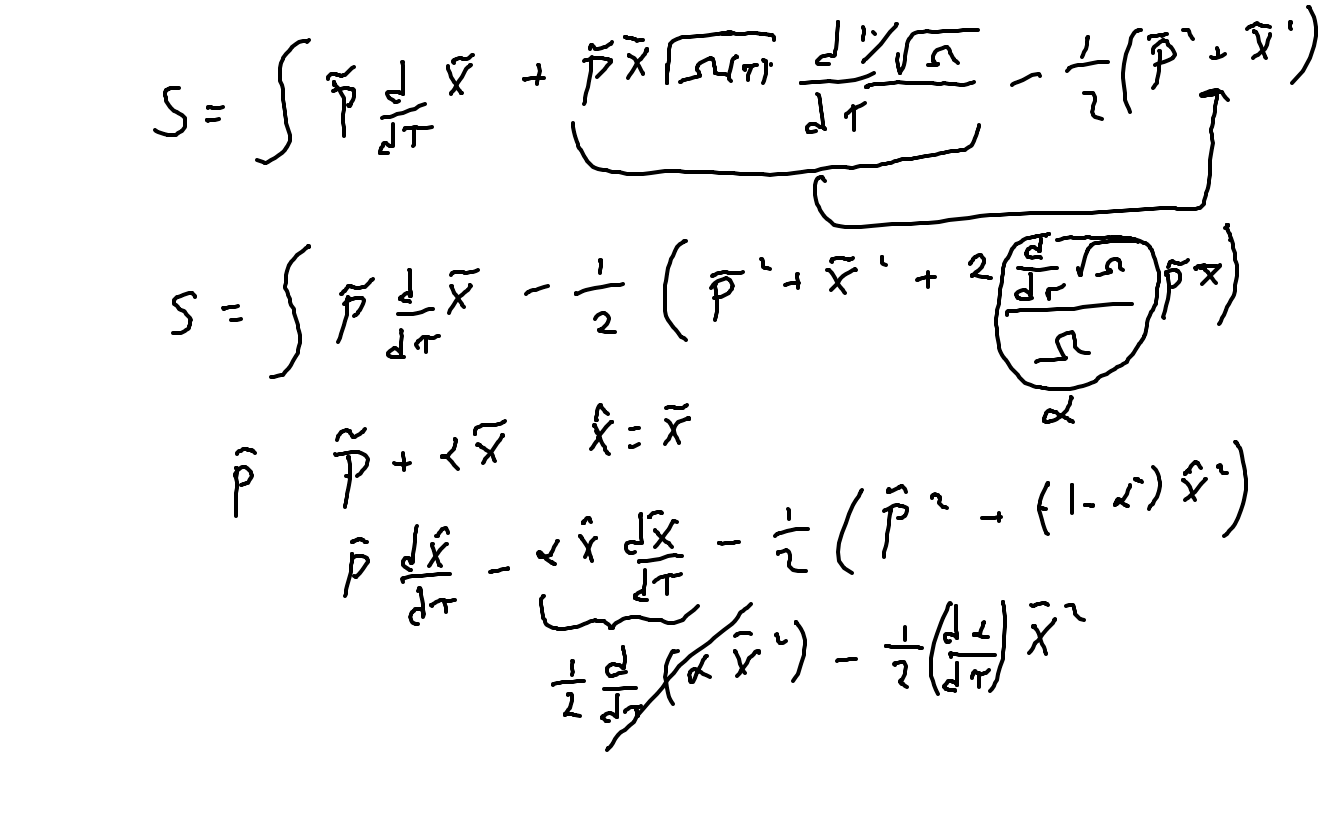 S = ∫ p̃ d/dτ x̃ + p̃ x̃ √Ω(τ) d 1/√Ω / dτ − 1/2 (p̃² + x̃²)
S = ∫ p̃ d/dτ x̃ − 1/2 (p̃² + x̃² + 2 (d/dτ √Ω / Ω) p̃ x̃)
α
p̂ p̃ + αx̃ x̂ = x̃
p̂ dx̂/dτ − α x̂ dx̂/dτ − 1/2 (p̂² + (1 − α²) x̂²)
1/2 d/dτ (α x̃²) − 1/2 (dα/dτ) x̃²